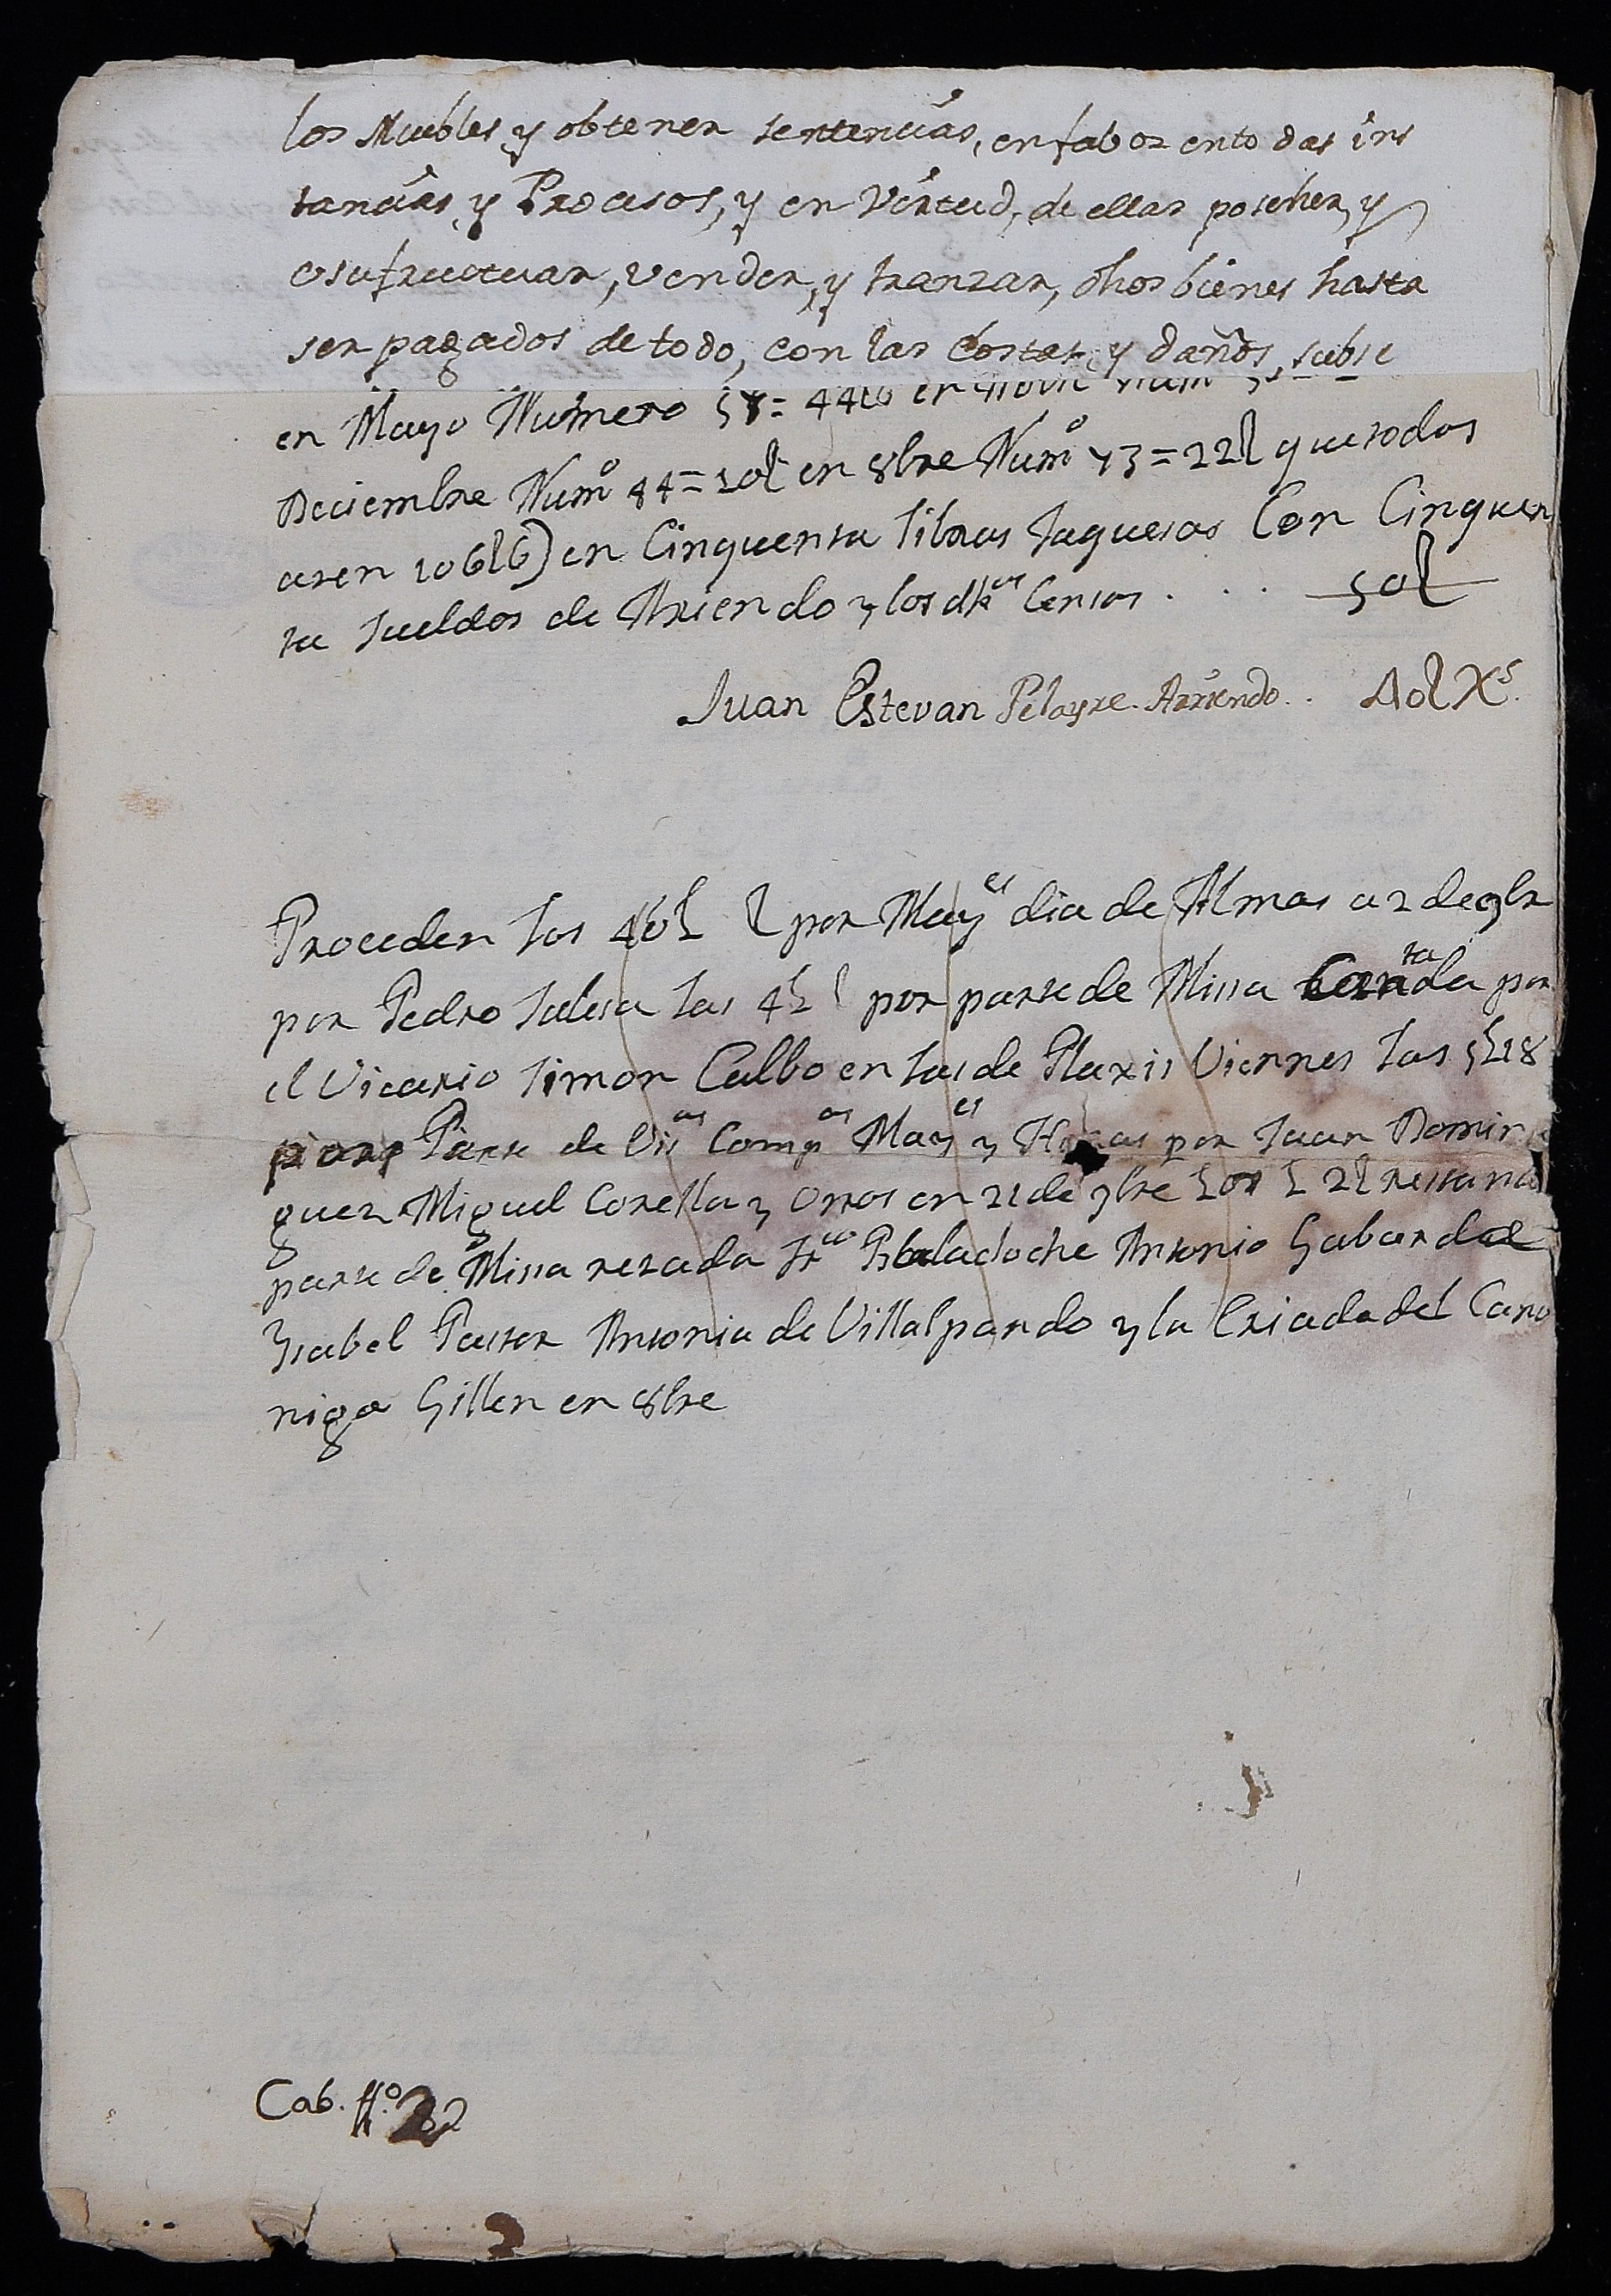 los Muebles y obtener sentencias, en fabor en to das ins
tancias y Procesos, y en Virtud, de ellas poseher, y
osufructuar, vender, y tranzar, dhos bienes hasta
ser pagados de todo, con las Costas, y daños, subse
en Mayo Numero 58 = 44
Deciembre Numº 84 = 10l en 8bre Numº 73 = 22l que todos
acen 106l6) en Cinquenta libras Jaquesas Con Cinquen
ta sueldos de Arriendo y los dhos Censos . . . 50l
Juan Estevan Pelayre. Arriendo . . 40l Xs.
Proceden los 40l l por Mayes dia de Almas a 2 de 9br
por Pedro Salesa las 4l2 l por parte de Missa Cantada por
el Vicario Simon Calbo en las de Plaxis Viernes las 5l18
Parte de Vis Comps Mayes y por Juan Domin
guez Miguel Corella y Otros en 21 de 7bre 2l restana
parte de Missa rezada Frco Baladoche Antonio Gabarda
Ysabel Pastor Antonia de Villalpando y la Criada del Cano
nigo Gillen en 8bre
Cab. Nº. 22